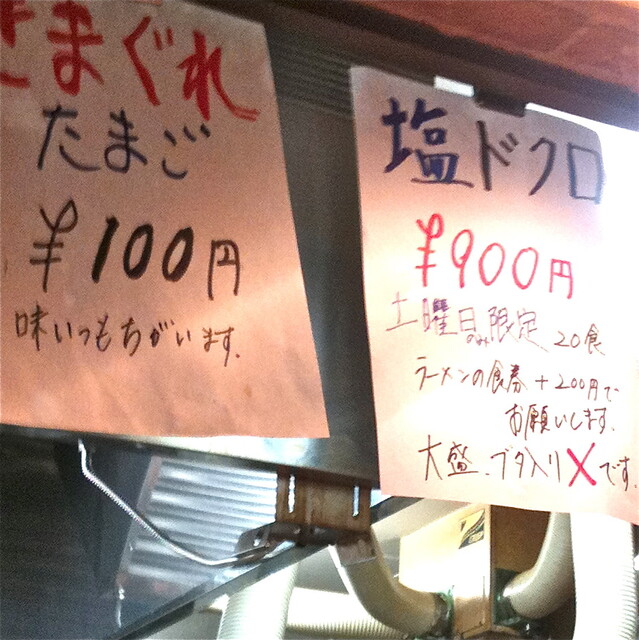 きまぐれ
たまご
¥100円
味いつもちがいます.
塩ドクロ
¥900円
土曜日のみ限定 20食
ラーメンの食券+200円で
お願いします.
大盛、ブタ入りXです.